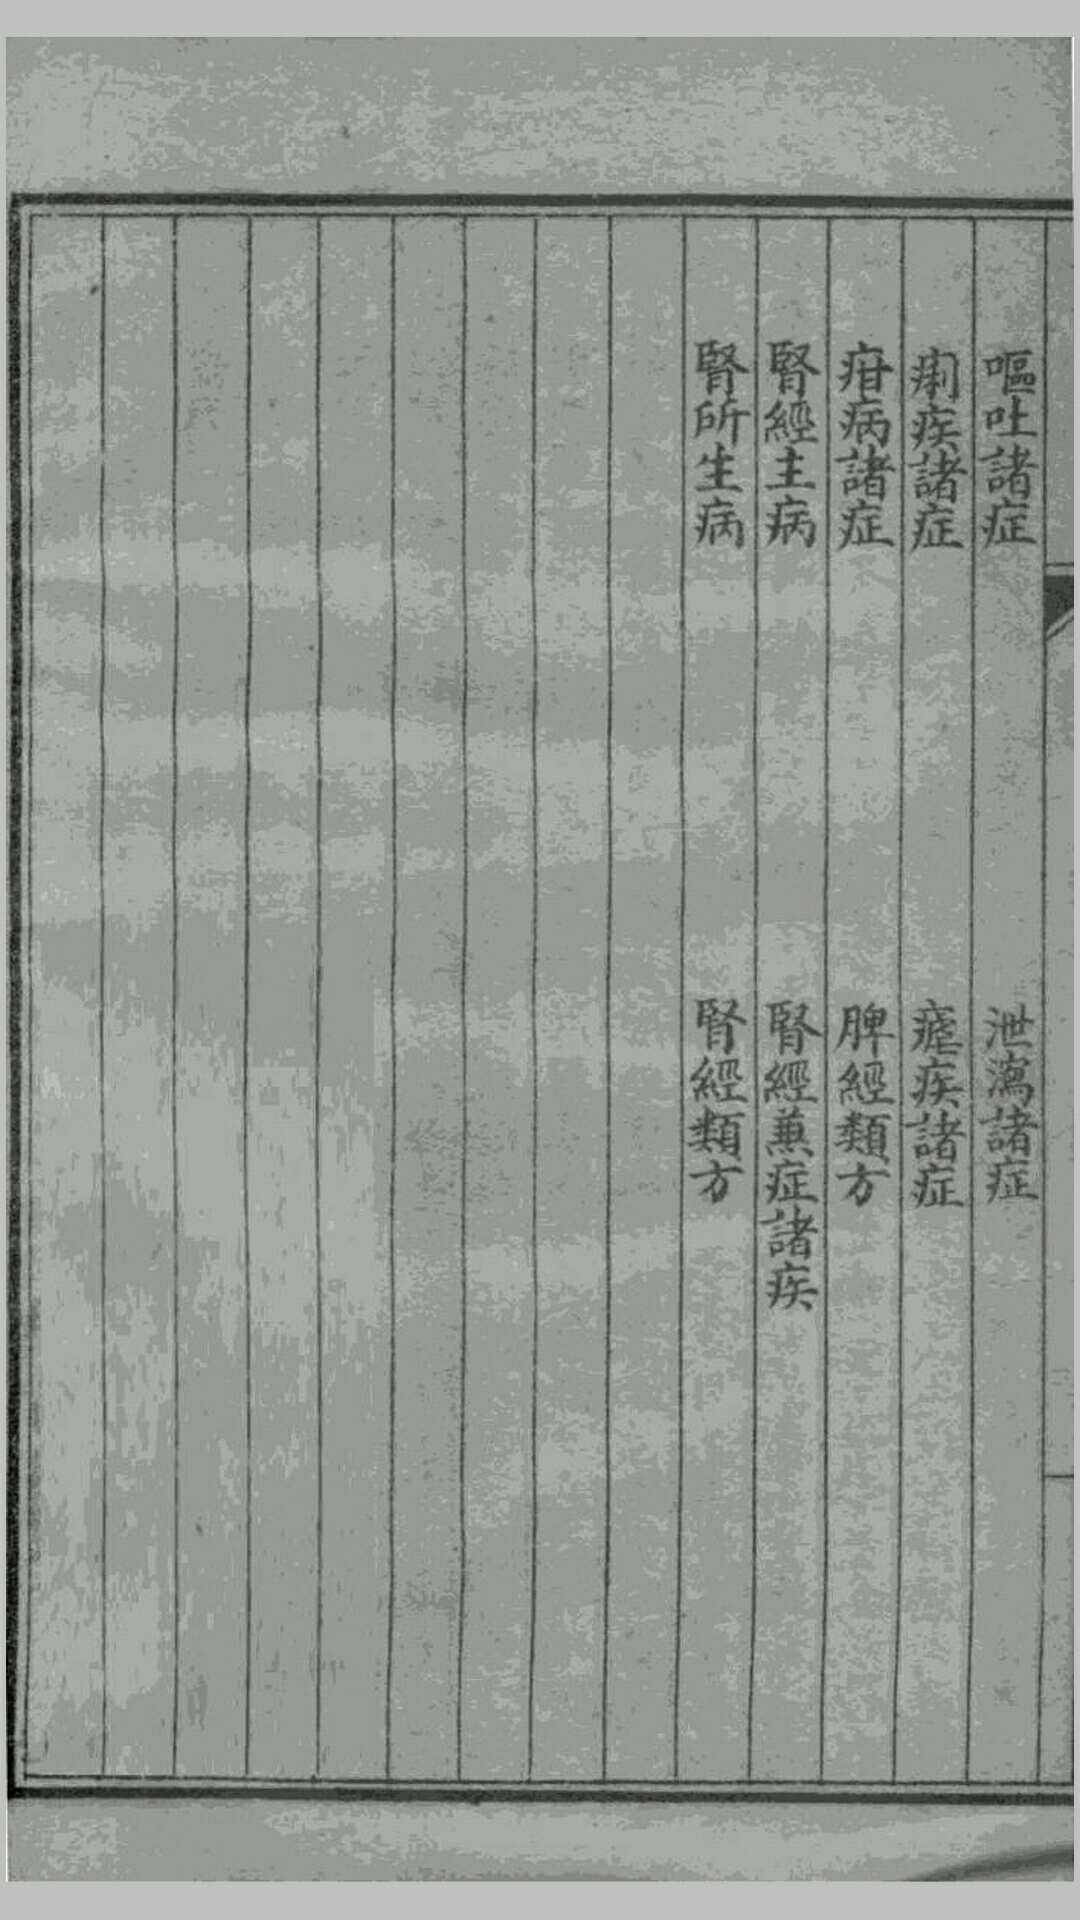 嘔吐諸症　泄瀉諸症
痢疾諸症　瘧疾諸症
疳病諸症　脾經類方
腎經主病　腎經蒹症諸疾
腎所生病　腎經類方